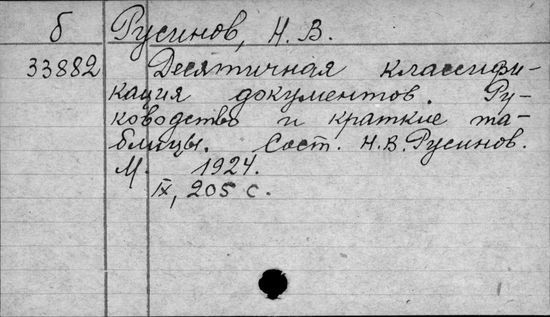 б Русинов, Н. В.
33882 Десятичная классифи-
кация документов. Ру-
ководство и краткие та-
блицы. Сост. Н.В. Русинов.
М. 1924.
IX, 205 с.